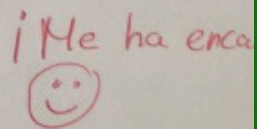 ¡Me ha enca